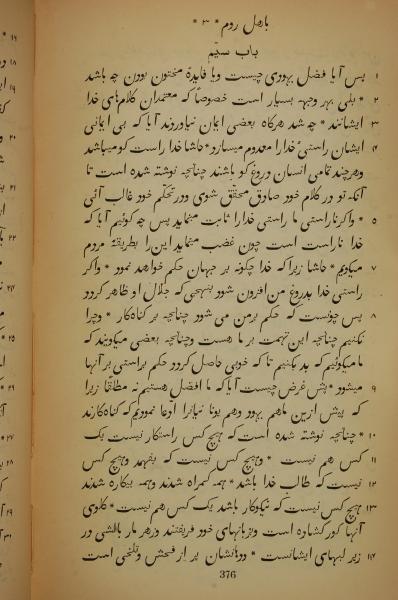 باهل روم * ۳ *
باب سیّم
۱ پس آیا فضل یهودی چیست ویا فایدهٔ مختون بودن چه باشد
۲ * بلی بهر وجهه بسیار است خصوصاً که معتمدان کلام‌های خدا
۳ ایشانند * چه شد هرگاه بعضی ایمان نیاوردند آیا که بی ایمانی
۴ ایشان راستیٔ خدا را معدوم میسازد * حاشا خدا راست کو میباشد
وهرچند تمامی انسان دروغ کو باشند چنانچه نوشته شده است تا
آنکه تو در کلام خود صادق محقّق شوی ودر تحکّم خود غالب آئی
۵ * واکر ناراستی ما راستی خدا را ثابت مینماید پس چه کوئیم آیا که
خدا ناراست است چون غضب مینماید این‌را بطریقهٔ مردم
۷ میکویم * حاشا زیرا که خدا چکونه بر جهان حکم خواهد نمود * واکر
راستی خدا بدروغ من افزون شود بنهجی که جلال او ظاهر کردد
۸ پس چونست که حکم برمن می شود چنانچه بر کناه‌کار * وچرا
نکنیم چنانچه این تهمت بر ما هست وچنانچه بعضی میکویند که
ما میکوئیم که بد بکنیم تا که خوبی حاصل کردد حکم براستی بر آنها
۹ میشود * پس غرض چیست آیا که ما افضل هستیم نه مطلقا زیرا
که پیش ازین ماهم یهود وهم یونانیانرا ادعا نمودیم که کناه‌کارند
۱۰ * چنانچه نوشته شده است که هیچ کس راستکار نیست یک
۱۱ کس هم نیست * وهیچ کس نیست که بفهمد وهیچ کس
۱۲ نیست که طالب خدا باشد * همه کمراه شدند وهمه بیکاره شدند
۱۳ هیچ کس نیست که نیکوکار باشد یک کس هم نیست * کلوی
آنها کور کشاده است وبزبانهای خود فریفتند وزهر مار باقشی در
۱۴ زیر لبهای ایشانست * دهانشان پر از فحش وتلخی است
376